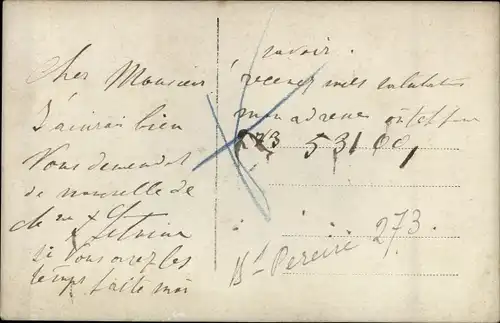 cher Monsieur
J'aimrai bien
Vous demendat
de nouvelle de
si Vous avez les
temps faite moi
savoir.
recevez mes salutations
mon adresse
273 53100,
Bd Pereire 273.